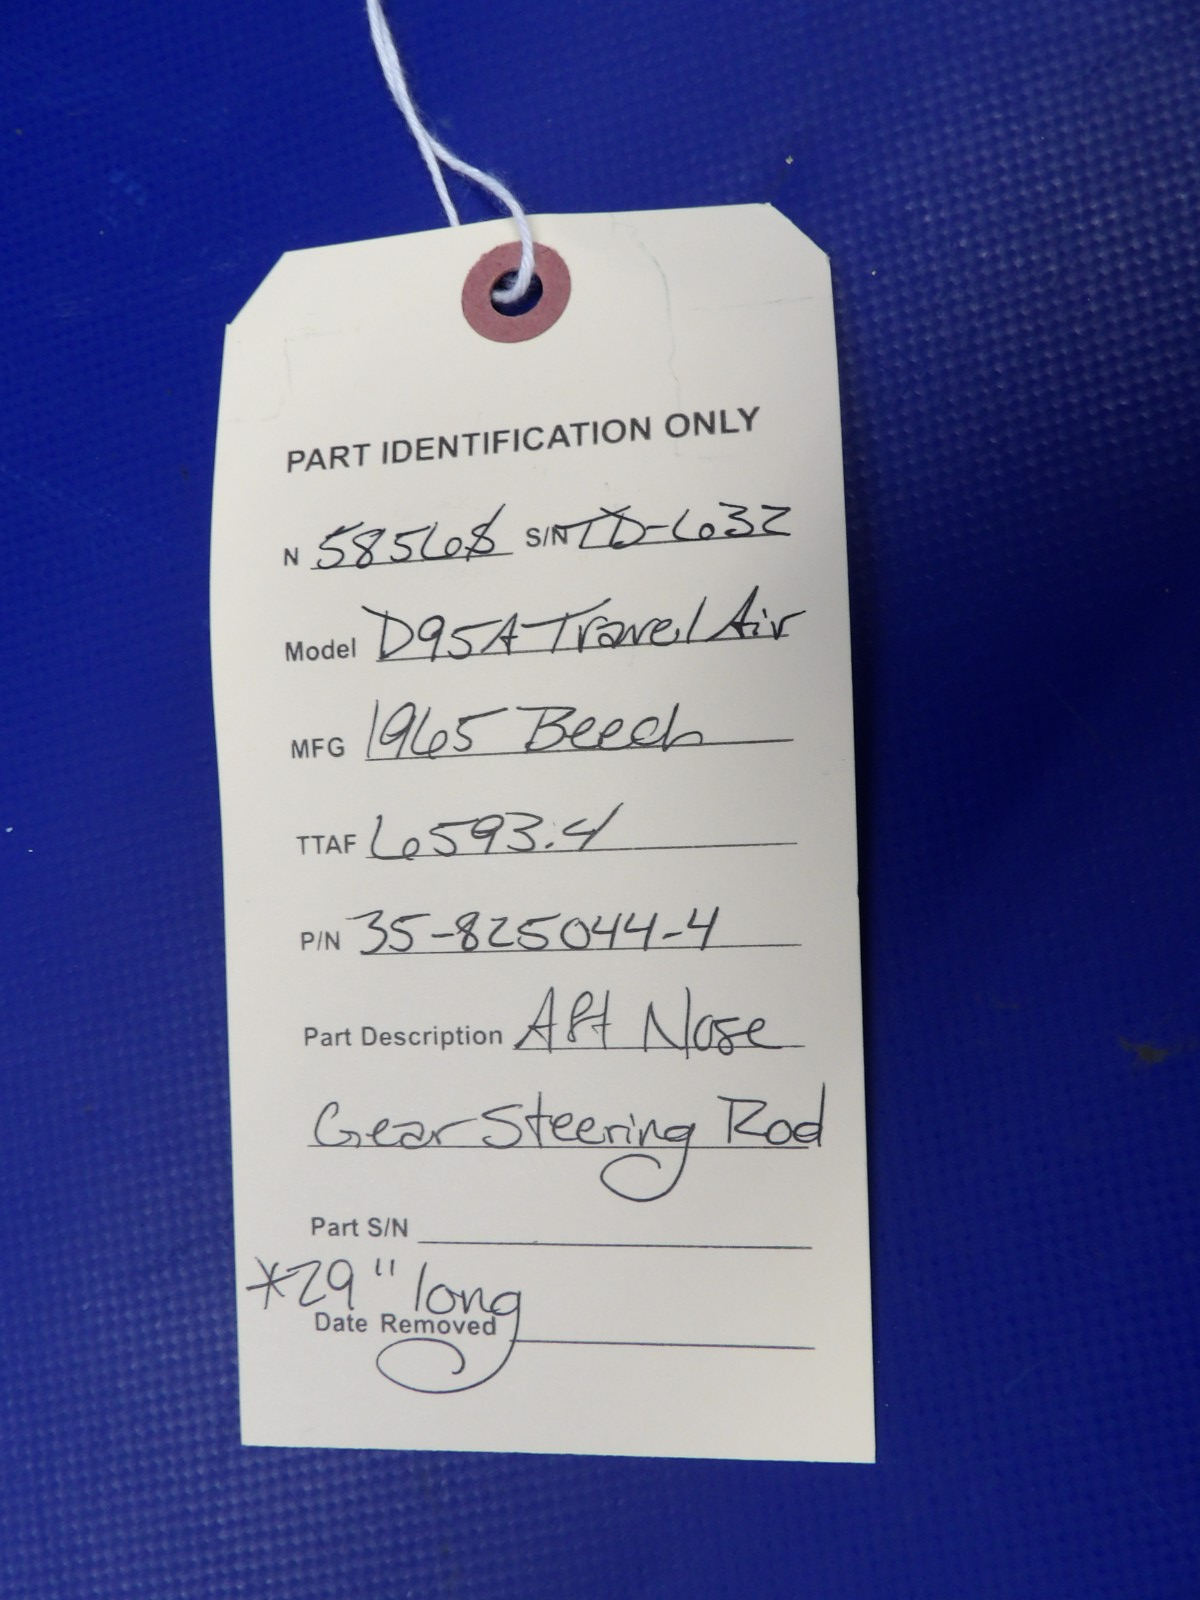 PART IDENTIFICATION ONLY
N 5856S S/N TD-632
Model D95A Travel Air
MFG 1965 Beech
TTAF 6593.4
P/N 35-825044-4
Part Description Aft Nose
Gear Steering Rod
Part S/N
*29" long
Date Removed